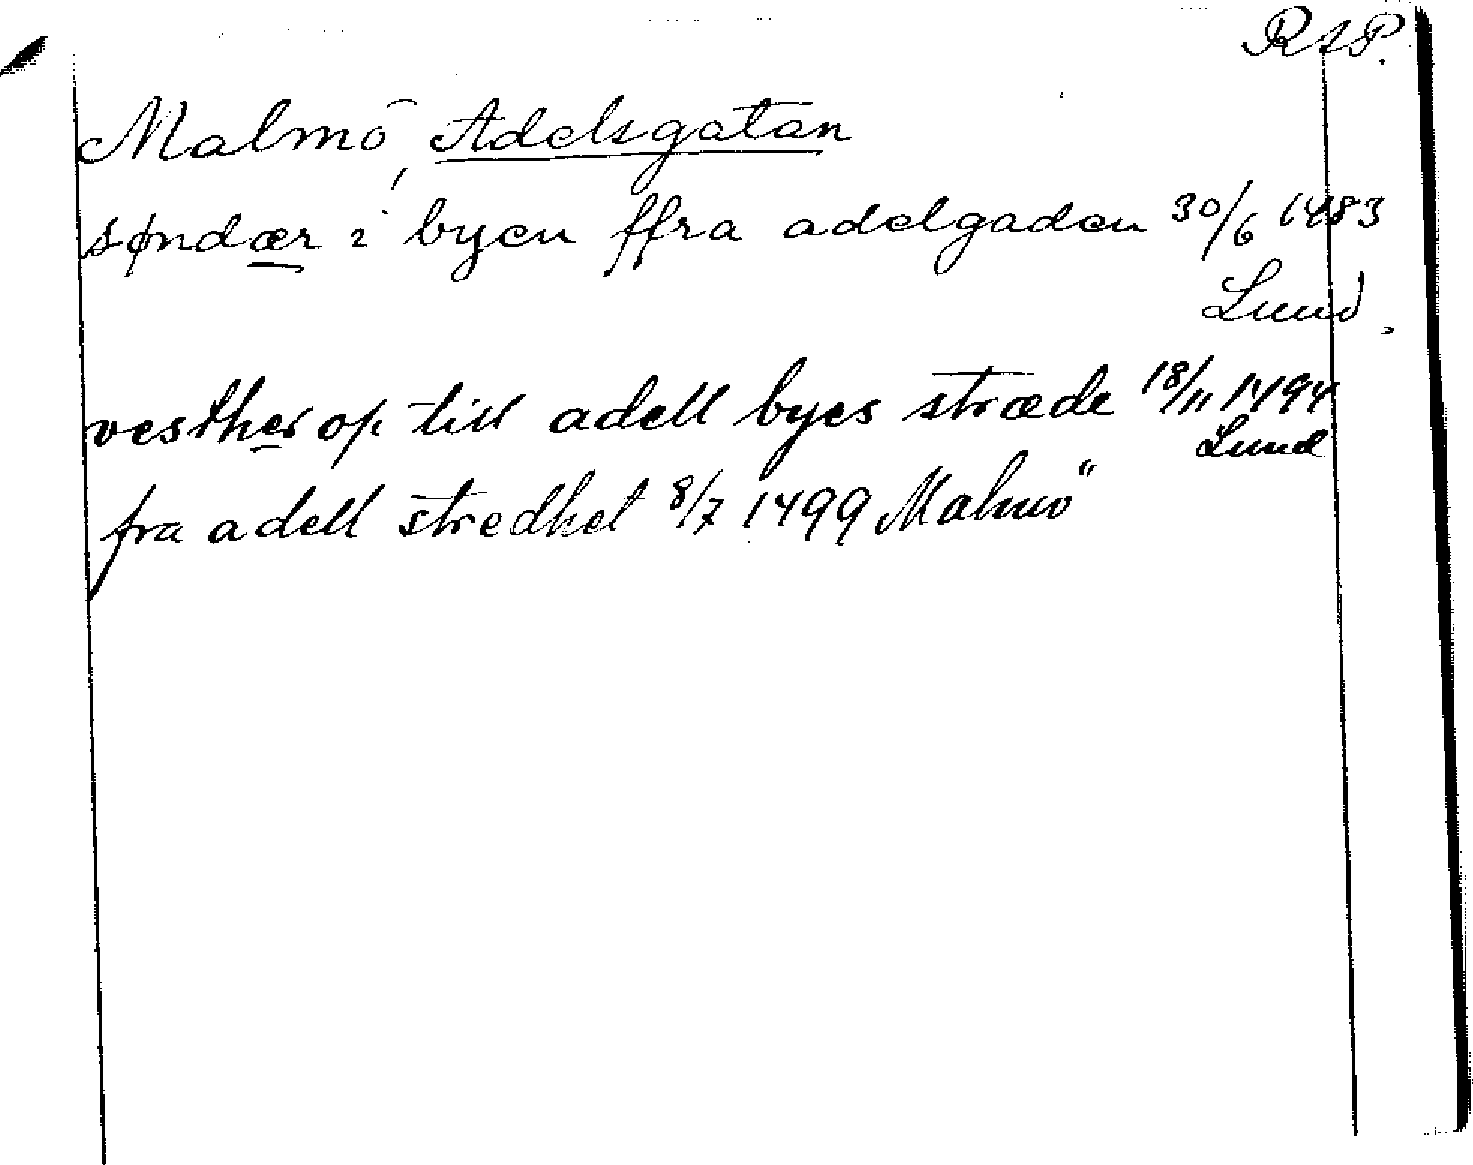 RAP.
Malmö, Adelsgatan
søndær i byen ffra adelgaden 30/6 1483
Lund.
vesther op till adell byes stræde 18/11 1494
Lund
fra adell stredhet 8/7 1499 Malmö